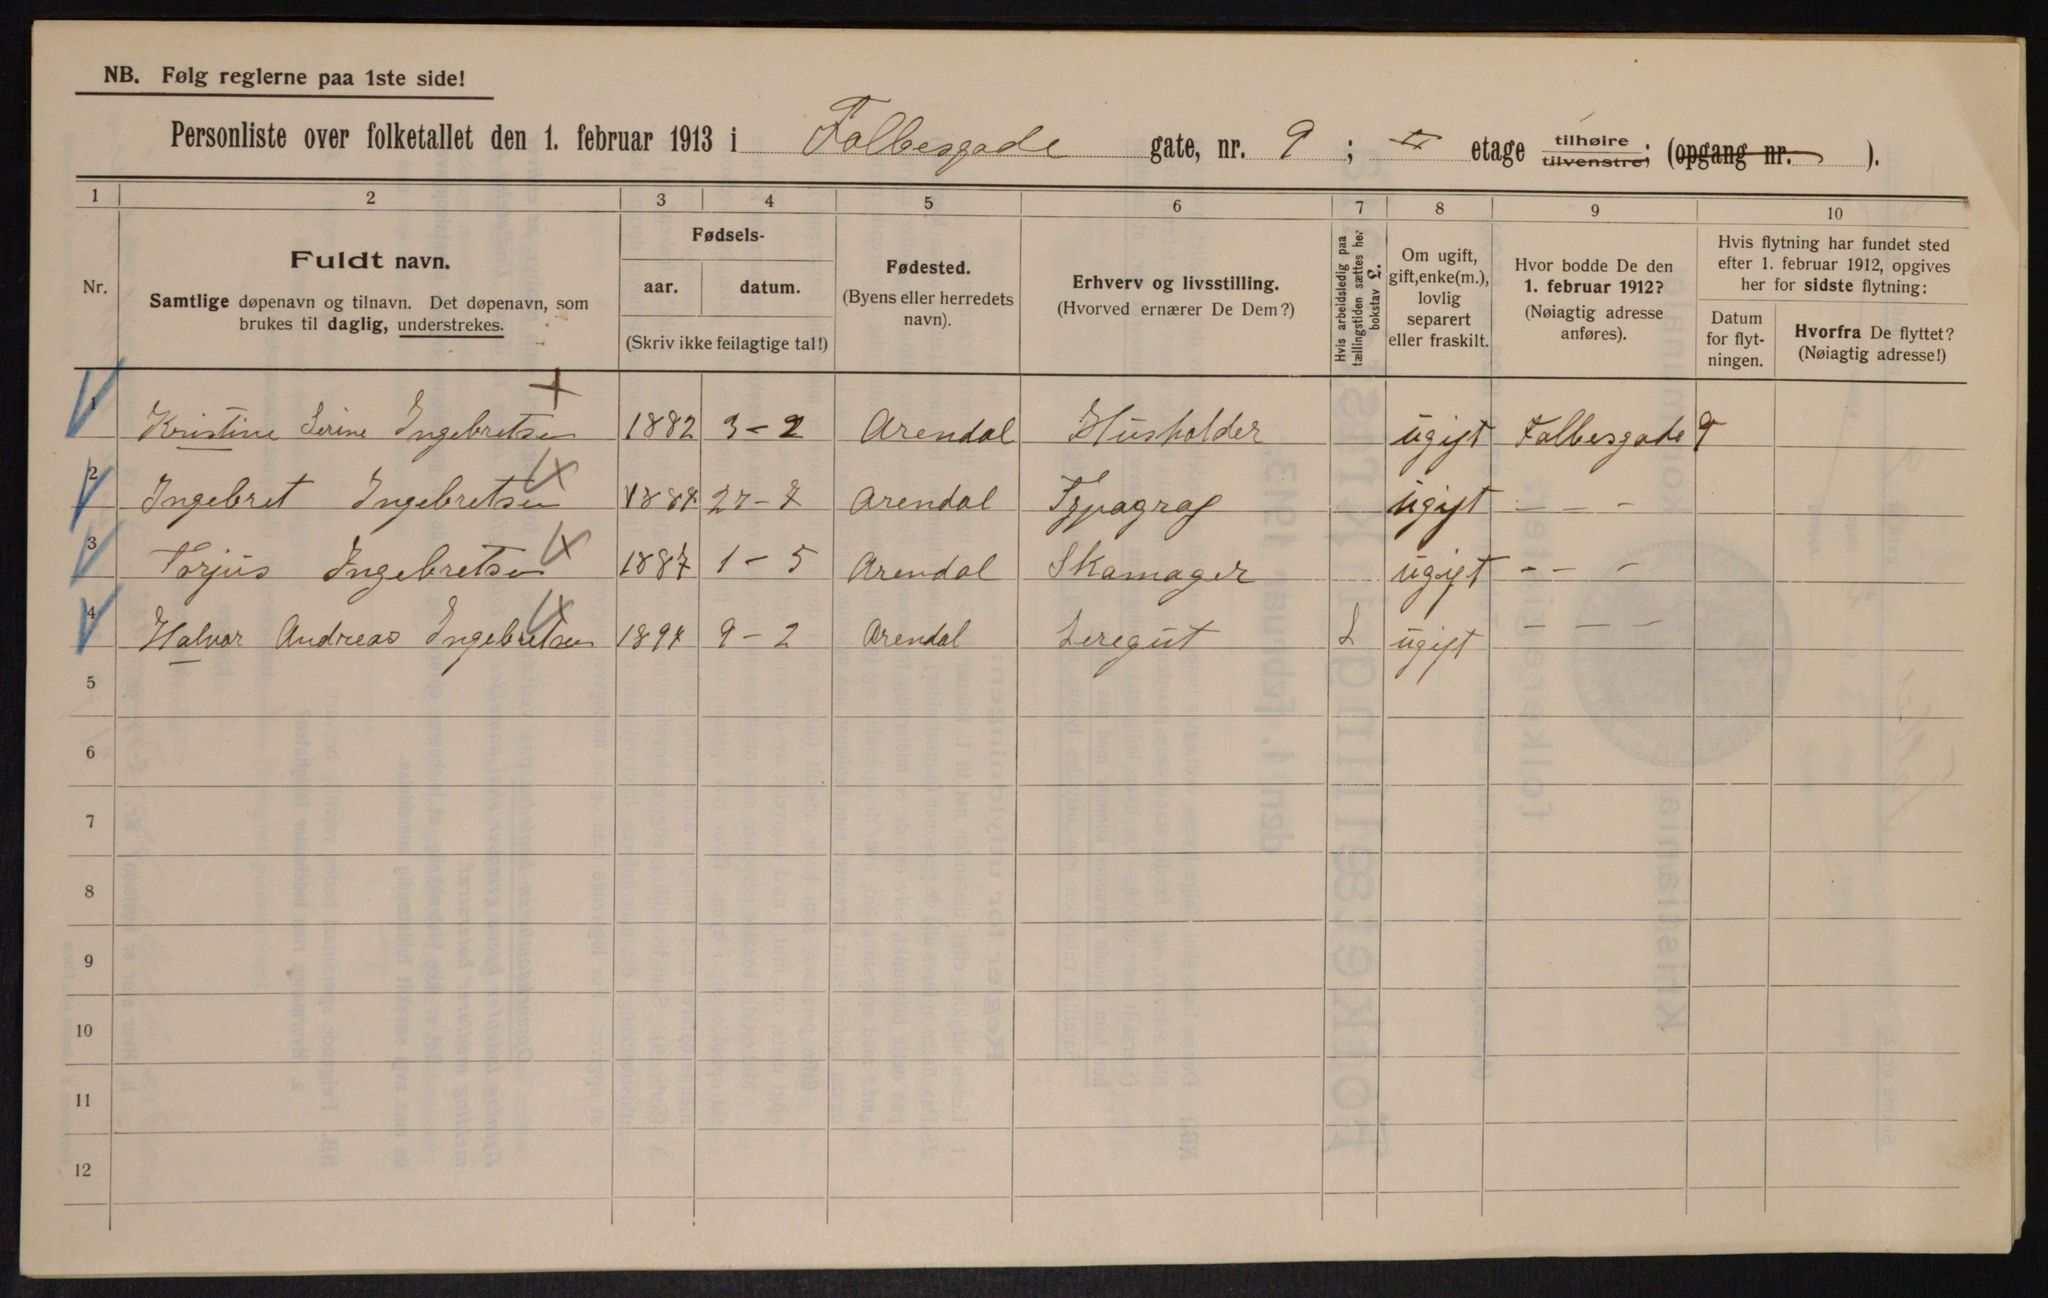 NB. Følg reglerne paa 1ste side!
Personliste over folketallet den 1. februar 1913 i Falbesgade gate, nr. 9 ; II etage tilhøire tilvenstre; (opgang nr. ).
1 2 3 4 5 6 7 8 9 10
Nr.
Fuldt navn.
Samtlige døpenavn og tilnavn. Det døpenavn, som
brukes til daglig, understrekes.
Fødsels-
aar. datum.
(Skriv ikke feilagtige tal!)
Fødested.
(Byens eller herredets
navn).
Erhverv og livsstilling.
(Hvorved ernærer De Dem?)
Hvis arbeidsledig paa
tællingstiden sættes her
bokstav L.
Om ugift,
gift, enke(m.),
lovlig
separert
eller fraskilt.
Hvor bodde De den
1. februar 1912?
(Nøiagtig adresse
anføres).
Hvis flytning har fundet sted
efter 1. februar 1912, opgives
her for sidste flytning:
Datum
for flyt-
ningen.
Hvorfra De flyttet?
(Nøiagtig adresse!)
1 Kristine Serine Ingebretsen 1882 3-2 Arendal Husholder ugift Falbesgade 9
2 Ingebret Ingebretsen 27-7 Arendal Typagraf ugift - - -
3 Torjus Ingebretsen 1887 1-5 Arendal Skamager ugift - - -
4 Halvor Andreas Ingebretsen 9-2 Arendal Leregut L ugift - - -
5
6
7
8
9
10
11
12